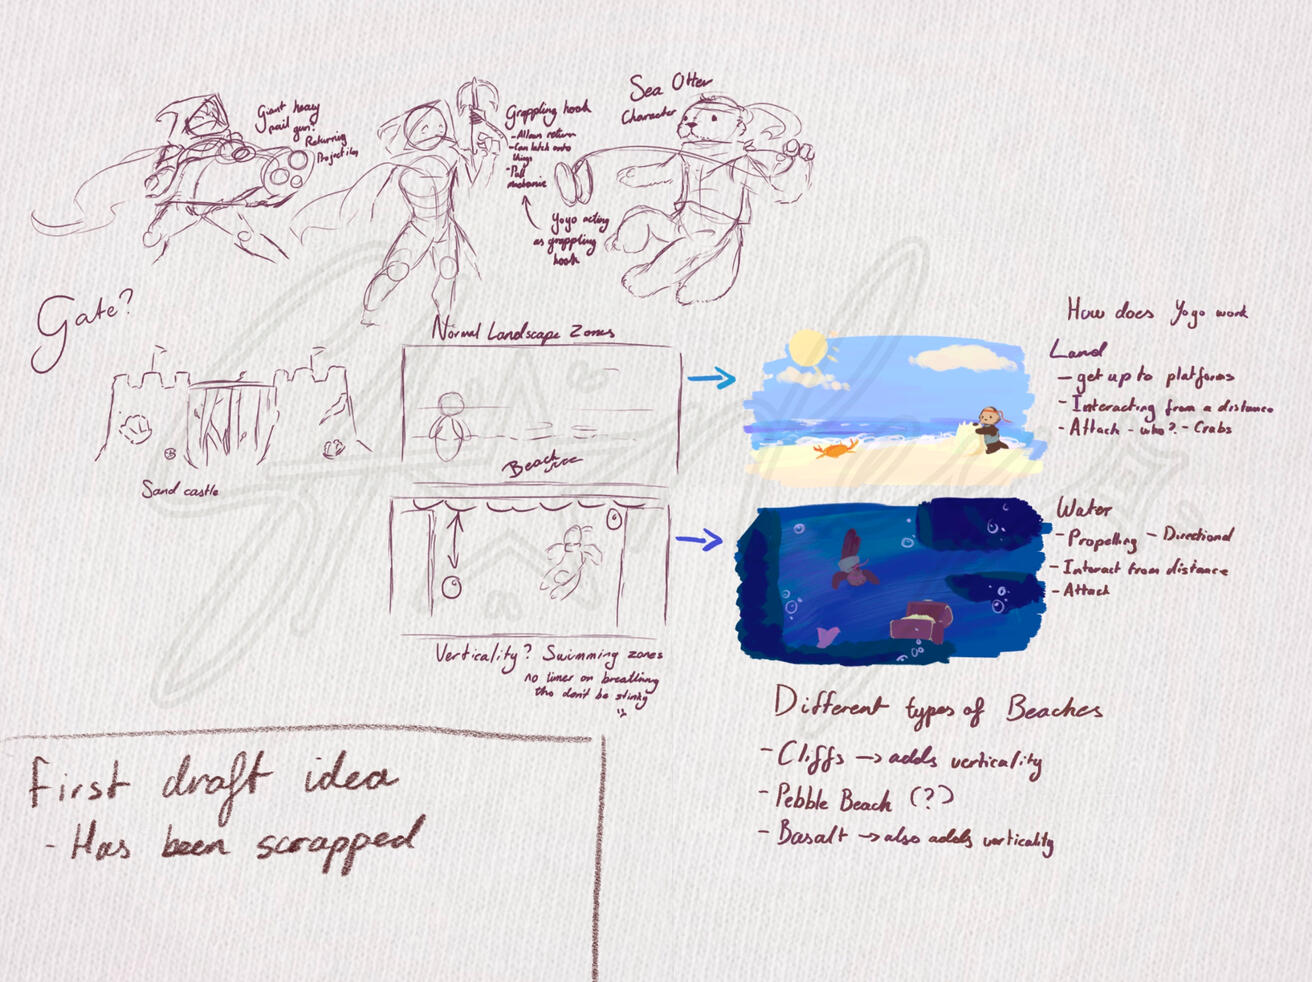 Giant heavy
nail gun?
Returning
Projectiles
Grappling hook
- Allows return
- Can latch onto
things
- Pull
mechanic
Yoyo acting
as grappling
hook
Sea Otter
Character
Gate?
Sand castle
Normal Landscape Zones
Beach
Verticality? Swimming zones
no timer on breathing
tho don't be stinky
How does Yoyo work
Land
- get up to platforms
- Interacting from a distance
- Attack - who? - Crabs
Water
- Propelling - Directional
- Interact from distance
- Attack
Different types of Beaches
- Cliffs → adds verticality
- Pebble Beach (?)
- Basalt → also adds verticality
First draft idea
- Has been scrapped